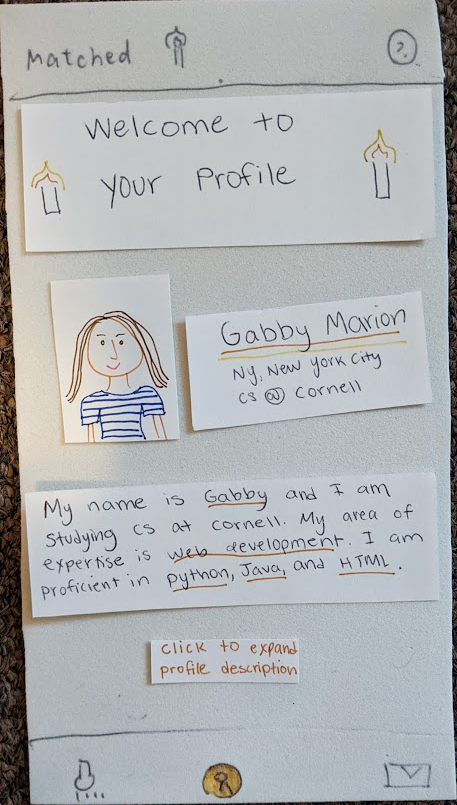 Matched
?
Welcome to
Your Profile
Gabby Marion
NY, New York City
CS @ Cornell
My name is Gabby and I am
studying CS at Cornell. My area of
expertise is web development. I am
proficient in python, Java, and HTML.
click to expand
profile description